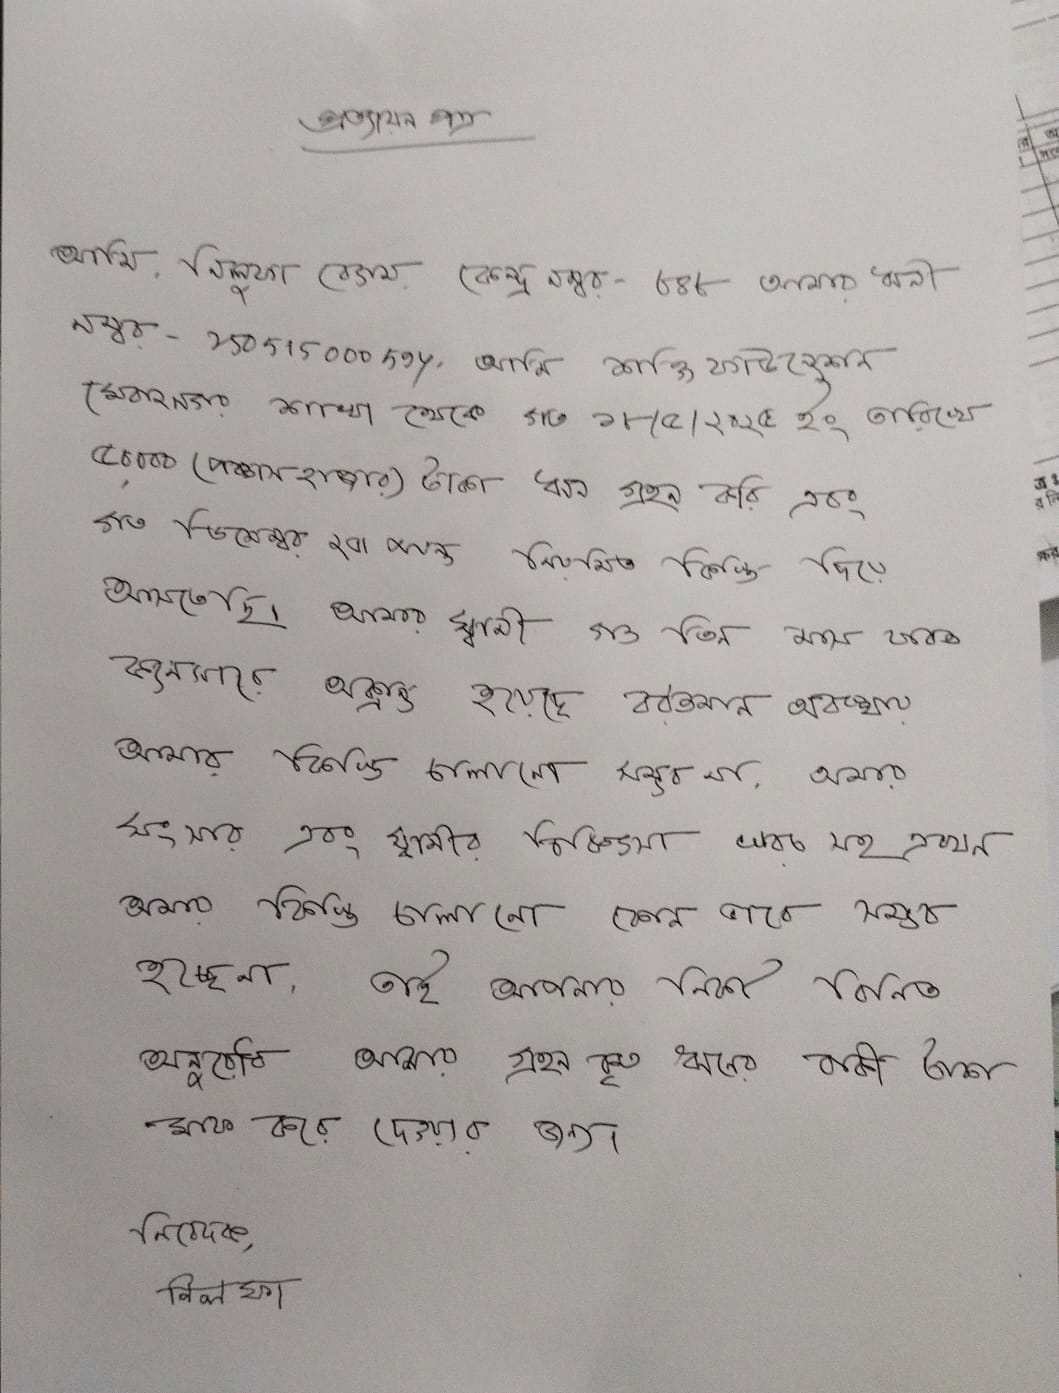 প্রত্যায়ন পত্র
আমি, নিলুফা বেগম, কেন্দ্র নম্বর- ৮৪৮ আমার ঋনী
নম্বর- 250515000594, আমি শক্তি ফাউন্ডেশন
শাখা থেকে গত ২৮/৫/২০২৫ ইং তারিখে
৫০,০০০ (পঞ্চাশ হাজার) টাকা ঋন গ্রহন করি এবং
গত ডিসেম্বর ২০৷ পযন্ত নিয়মিত কিস্তি দিয়ে
আসতেছি। আমার স্বামী গত তিন মাস যাবত
আক্রান্ত হয়েছে বর্তমান অবস্থায়
আমার কিস্তি চালানো সম্ভব না, আমার
সংসার এবং স্বামীর চিকিতসা খরচ সহ এখন
আমার কিস্তি চালানো কোন ভাবে সম্ভব
হচ্ছেনা, তাই আপনার নিকট বিনিত
অনুরোধ আমার গ্রহন কৃত ঋনের বাকী টাকা
মাফ করে দেওয়ার জন্য।
নিবেদক,
নিলুফা